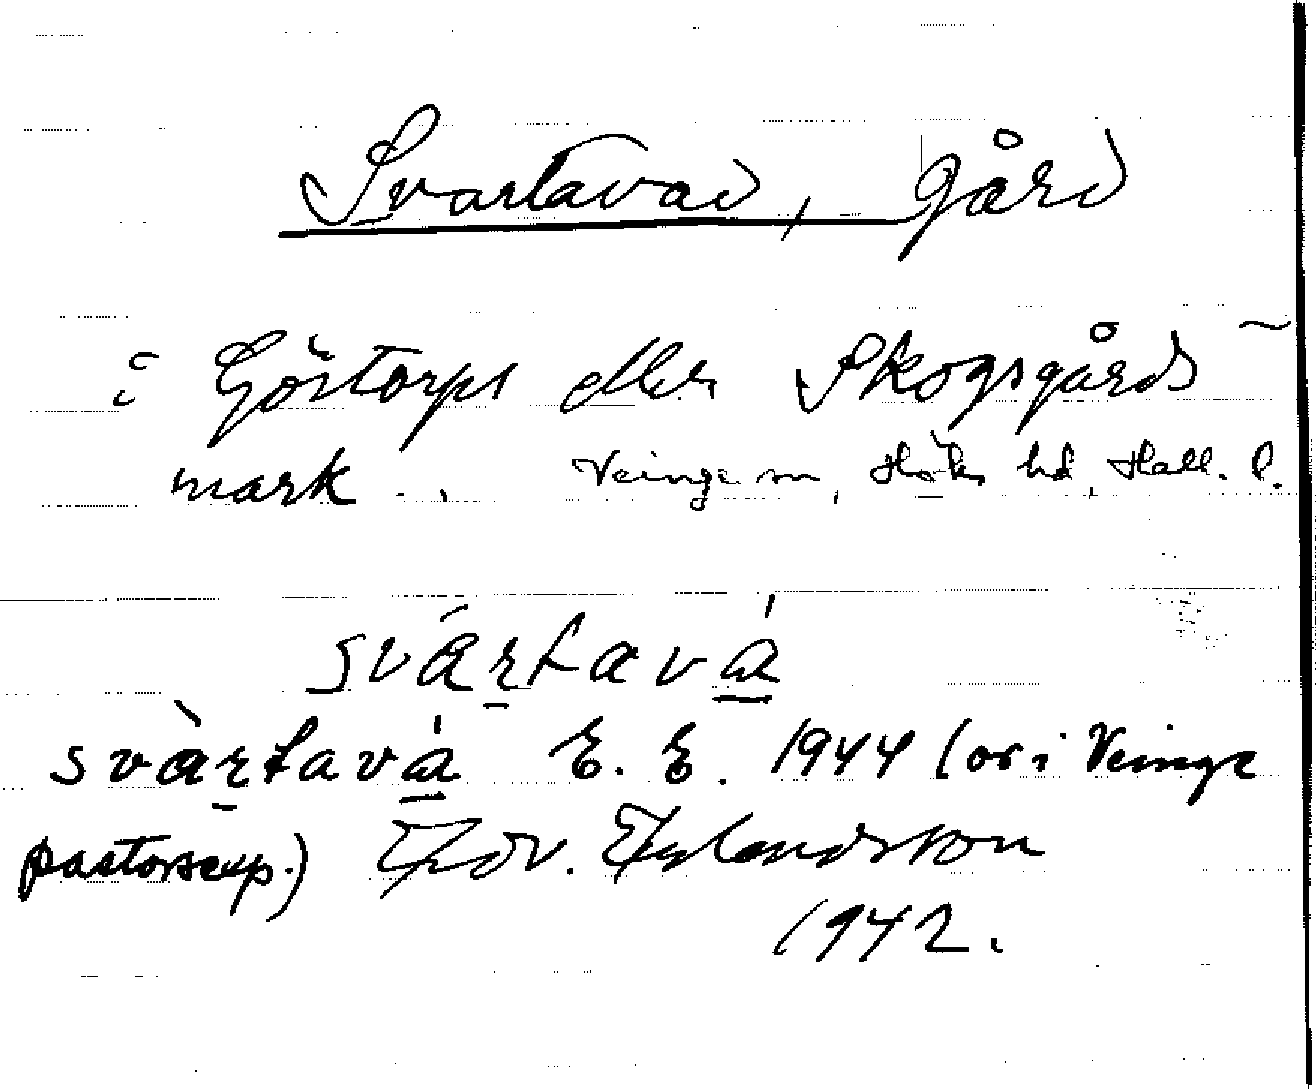 Svartavad, Gård
i Göstorps eller Skogsgårds
mark. Veinge sn, Höks hd, Hall. l.
svártavá
svàrtavá E. E. 1944 (os i Veinge
pastorsexp.)
1942.